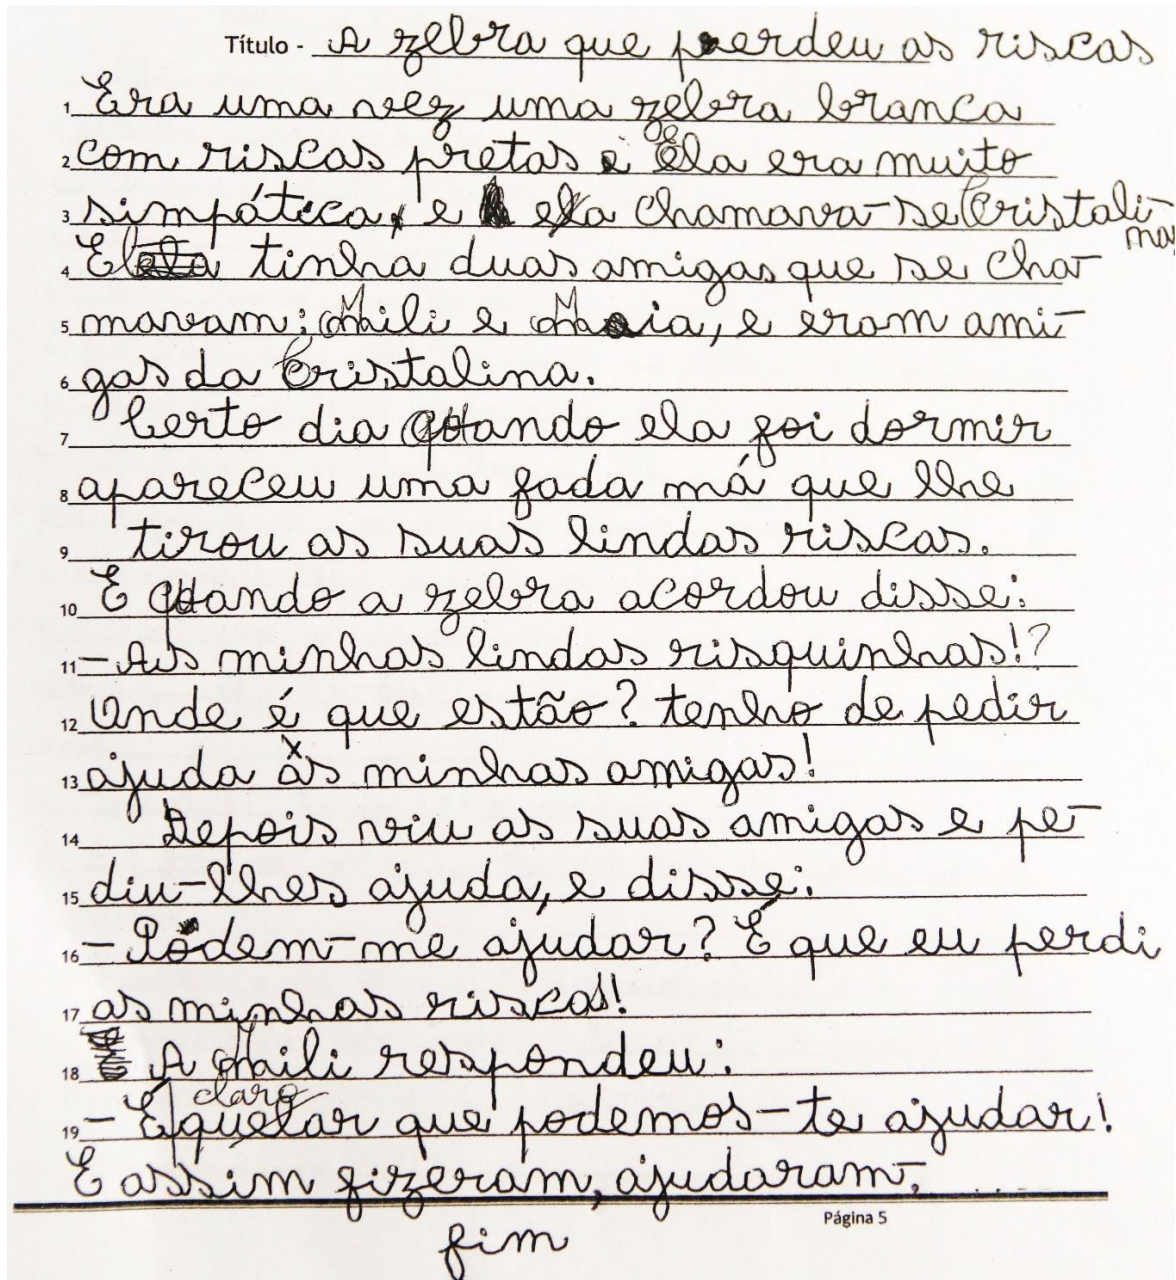 Título - A zebra que perdeu as riscas
1 Era uma vez uma zebra branca
2 com riscas pretas e Ela era muito
3 simpática, e ela chamava-se Cristali-
na,
4 Ela tinha duas amigas que se cha-
5 mavam: Mili e Maia, e eram ami-
6 gas da Cristalina.
7 Certo dia quando ela foi dormir
8 apareceu uma fada má que lhe
9 tirou as suas lindas riscas.
10 E quando a zebra acordou disse:
11 - As minhas lindas risquinhas!?
12 Onde é que estão? tenho de pedir
13 ajuda às minhas amigas!
14 Depois viu as suas amigas e pe-
15 diu-lhes ajuda, e disse:
16 - Podem-me ajudar? É que eu perdi
17 as minhas riscas!
18 A Mili respondeu:
claro
19 - É que que podemos-te ajudar!
E assim fizeram, ajudaram-,
Página 5
fim